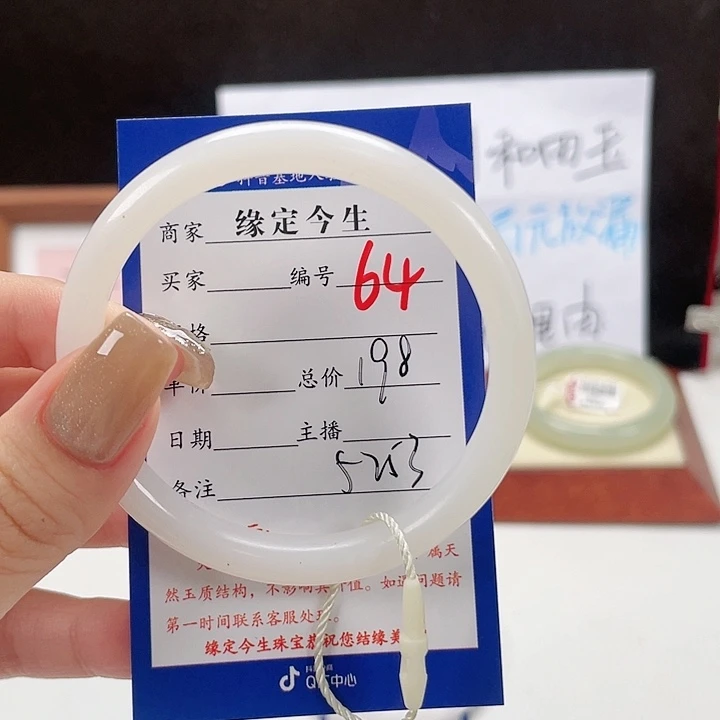 商家 缘定今生
买家 编号 64
格
单价 总价 198
日期 主播
备注 5253
属天
然玉质结构，不影响其价值。如遇问题请
第一时间联系客服处理。
缘定今生珠宝恭祝您结缘美
中心
和田玉